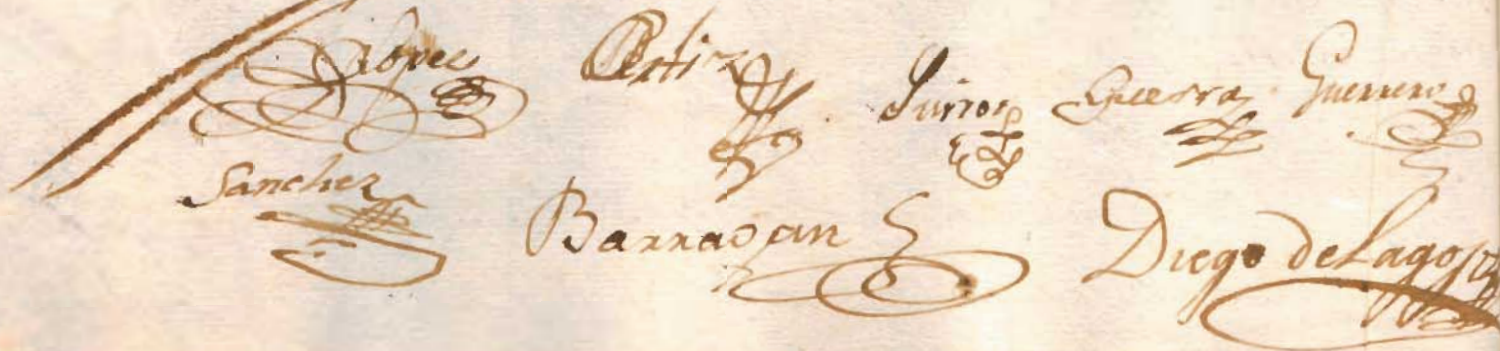 Lopez Ortiz Jurron Guerra Guerrero
Sanchez Barragan Diego de Lagos